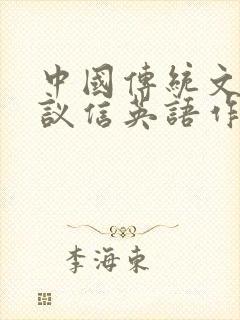 中國傳統文
議信英語作
李海東